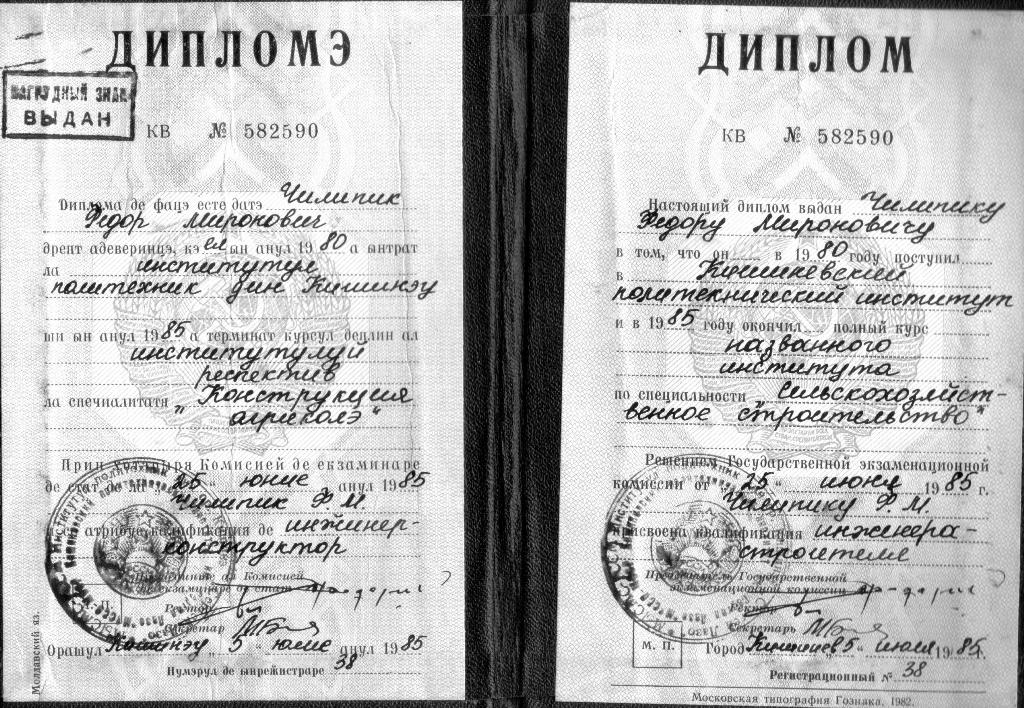 ДИПЛОМЭ
НАГРУДНЫЙ ЗНАК
ВЫДАН
КВ № 582590
Диплома де фацэ есте датэ Чилипик
Федор Миронович
дрепт адеверинцэ, кэ ел ын анул 1980 а ынтрат
ла институтул
политехник дин Кишинэу
ши ын анул 1985 а терминат курсул деплин ал
институтулуй
респектив
ла специалитатя „Конструкция
агриколэ“
Прин хотэрыря Комисией де екзаминаре
де стат де ла „25“ юние анул 1985
Чилипик Ф.М.
атрибуе калификация де инжинер-
конструктор
Комисией
екзаминаре де стат
Ректор
Секретар
Орашул Кишинэу „5“ юлие анул 1985
Нумэрул де ынрежистраре 38
Молдавский яз.
ДИПЛОМ
КВ № 582590
Настоящий диплом выдан Чилипику
Федору Мироновичу
в том, что он в 1980 году поступил
в Кишиневский
политехнический институт
и в 1985 году окончил полный курс
названного
института
по специальности „Сельскохозяйст-
венное строительство“
Решением Государственной экзаменационной
комиссии от „25“ июня 1985 г.
Чилипику Ф.М.
присвоена квалификация инженера-
строителя
Председатель Государственной
экзаменационной комиссии
Ректор
Секретарь
М. П.
Город Кишинев „5“ июля 1985г.
Регистрационный № 38
Московская типография Гознака. 1982.